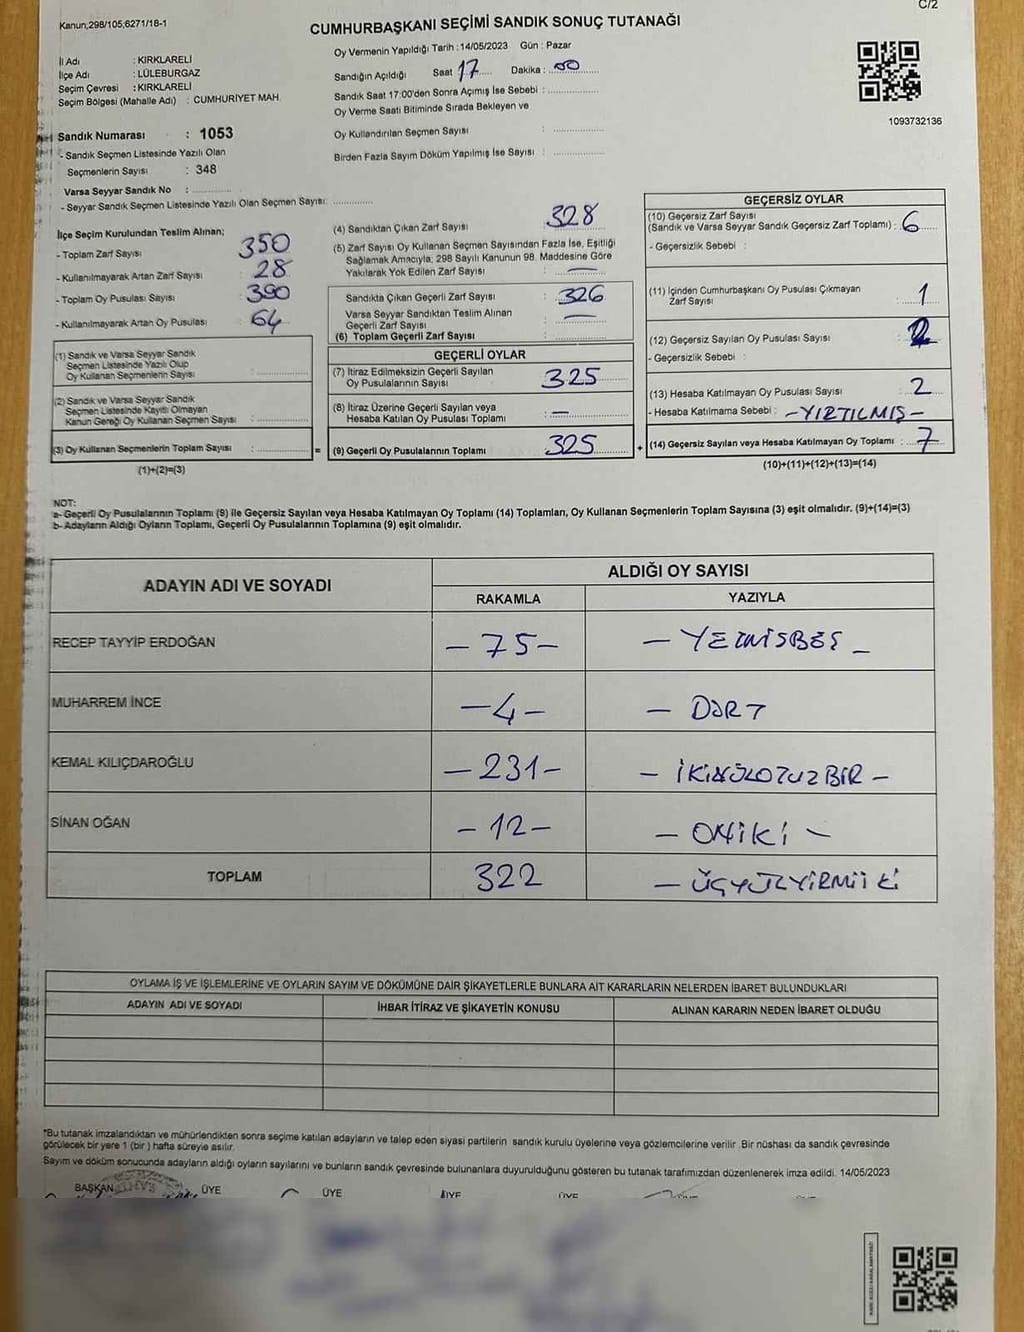 C/2
Kanun,298/105;6271/18-1
CUMHURBAŞKANI SEÇİMİ SANDIK SONUÇ TUTANAĞI
İl Adı : KIRKLARELİ
İlçe Adı : LÜLEBURGAZ
Seçim Çevresi : KIRKLARELİ
Seçim Bölgesi (Mahalle Adı) : CUMHURİYET MAH.
Sandık Numarası : 1053
- Sandık Seçmen Listesinde Yazılı Olan
Seçmenlerin Sayısı : 348
Varsa Seyyar Sandık No :
- Seyyar Sandık Seçmen Listesinde Yazılı Olan Seçmen Sayısı:
Oy Vermenin Yapıldığı Tarih : 14/05/2023 Gün : Pazar
Sandığın Açıldığı Saat 17 Dakika : 00
Sandık Saat 17:00'den Sonra Açımış İse Sebebi :
Oy Verme Saati Bitiminde Sırada Bekleyen ve
Oy Kullandırılan Seçmen Sayısı :
Birden Fazla Sayım Döküm Yapılmış İse Sayısı :
1093732136
İlçe Seçim Kurulundan Teslim Alınan;
- Toplam Zarf Sayısı : 350
- Kullanılmayarak Artan Zarf Sayısı : 28
- Toplam Oy Pusulası Sayısı : 390
- Kullanılmayarak Artan Oy Pusulası : 64
(1) Sandık ve Varsa Seyyar Sandık
Seçmen Listesinde Yazılı Olup
Oy Kullanan Seçmenlerin Sayısı :
(2) Sandık ve Varsa Seyyar Sandık
Seçmen Listesinde Kayıtlı Olmayan
Kanun Gereği Oy Kullanan Seçmen Sayısı :
(3) Oy Kullanan Seçmenlerin Toplam Sayısı : =
(1)+(2)=(3)
(4) Sandıktan Çıkan Zarf Sayısı : 328
(5) Zarf Sayısı Oy Kullanan Seçmen Sayısından Fazla İse, Eşitliği
Sağlamak Amacıyla, 298 Sayılı Kanunun 98. Maddesine Göre
Yakılarak Yok Edilen Zarf Sayısı : —
Sandıkta Çıkan Geçerli Zarf Sayısı : 326
Varsa Seyyar Sandıktan Teslim Alınan
Geçerli Zarf Sayısı : —
(6) Toplam Geçerli Zarf Sayısı :
GEÇERLİ OYLAR
(7) İtiraz Edilmeksizin Geçerli Sayılan
Oy Pusulalarının Sayısı : 325
(8) İtiraz Üzerine Geçerli Sayılan veya
Hesaba Katılan Oy Pusulası Toplamı : —
(9) Geçerli Oy Pusulalarının Toplamı : 325 +
GEÇERSİZ OYLAR
(10) Geçersiz Zarf Sayısı
(Sandık ve Varsa Seyyar Sandık Geçersiz Zarf Toplamı) : 6
- Geçersizlik Sebebi :
(11) İçinden Cumhurbaşkanı Oy Pusulası Çıkmayan
Zarf Sayısı : 1
(12) Geçersiz Sayılan Oy Pusulası Sayısı :
- Geçersizlik Sebebi :
(13) Hesaba Katılmayan Oy Pusulası Sayısı : 2
- Hesaba Katılmama Sebebi : -YIRTILMIŞ-
(14) Geçersiz Sayılan veya Hesaba Katılmayan Oy Toplamı : 7
(10)+(11)+(12)+(13)=(14)
NOT:
a- Geçerli Oy Pusulalarının Toplamı (9) ile Geçersiz Sayılan veya Hesaba Katılmayan Oy Toplamı (14) Toplamları, Oy Kullanan Seçmenlerin Toplam Sayısına (3) eşit olmalıdır. (9)+(14)=(3)
b- Adayların Aldığı Oyların Toplamı, Geçerli Oy Pusulalarının Toplamına (9) eşit olmalıdır.
ADAYIN ADI VE SOYADI
ALDIĞI OY SAYISI
RAKAMLA YAZIYLA
RECEP TAYYİP ERDOĞAN -75- - YETMİSBEŞ -
MUHARREM İNCE -4- - DÖRT
KEMAL KILIÇDAROĞLU -231- - İKİYÜZOTUZBİR -
SİNAN OĞAN -12- - ONİKİ -
TOPLAM 322 - ÜÇYÜZYİRMİİKİ
OYLAMA İŞ VE İŞLEMLERİNE VE OYLARIN SAYIM VE DÖKÜMÜNE DAİR ŞİKAYETLERLE BUNLARA AİT KARARLARIN NELERDEN İBARET BULUNDUKLARI
ADAYIN ADI VE SOYADI İHBAR İTİRAZ VE ŞİKAYETİN KONUSU ALINAN KARARIN NEDEN İBARET OLDUĞU
*Bu tutanak imzalandıktan ve mühürlendikten sonra seçime katılan adayların ve talep eden siyasi partilerin sandık kurulu üyelerine veya gözlemcilerine verilir. Bir nüshası da sandık çevresinde
görülecek bir yere 1 (bir) hafta süreyle asılır.
Sayım ve döküm sonucunda adayların aldığı oyların sayılarını ve bunların sandık çevresinde bulunanlara duyurulduğunu gösteren bu tutanak tarafımızdan düzenlenerek imza edildi. 14/05/2023
BAŞKAN ÜYE ÜYE ÜYE ÜYE ÜYE ÜYE